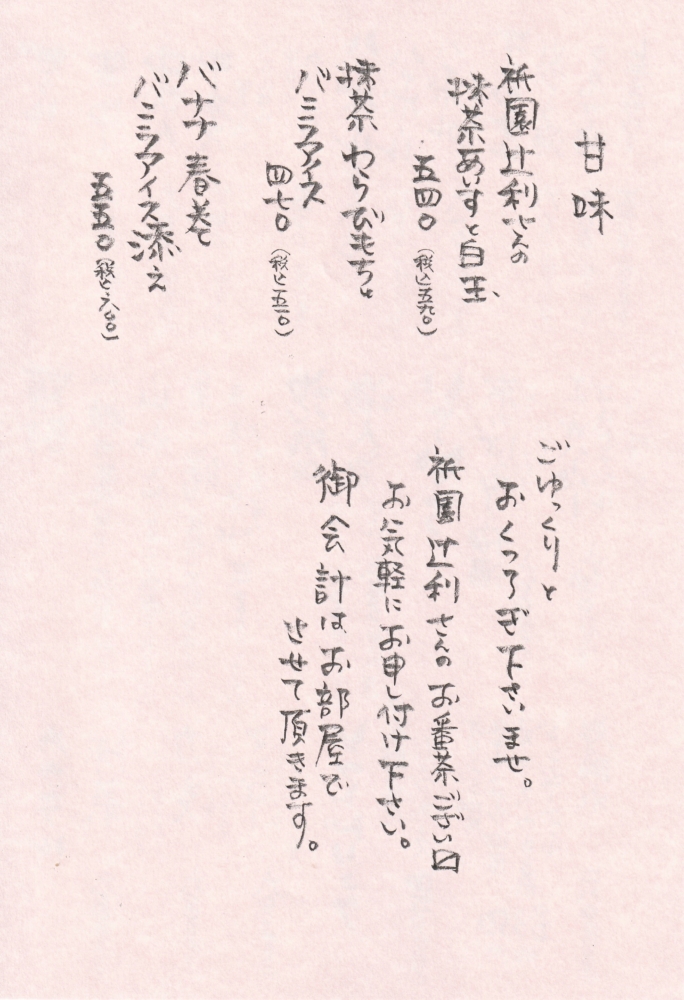 甘味
祇園辻利さんの
抹茶あいすと白玉
五四〇(税込五九〇)
抹茶わらびもちと
バニラアイス
四七〇(税込五一〇)
バナナ春巻
バニラアイス添え
五五〇(税込六〇〇)
ごゆっくりと
おくつろぎ下さいませ。
祇園辻利さんのお番茶ござい〼
お気軽にお申し付け下さい。
御会計はお部屋で
させて頂きます。